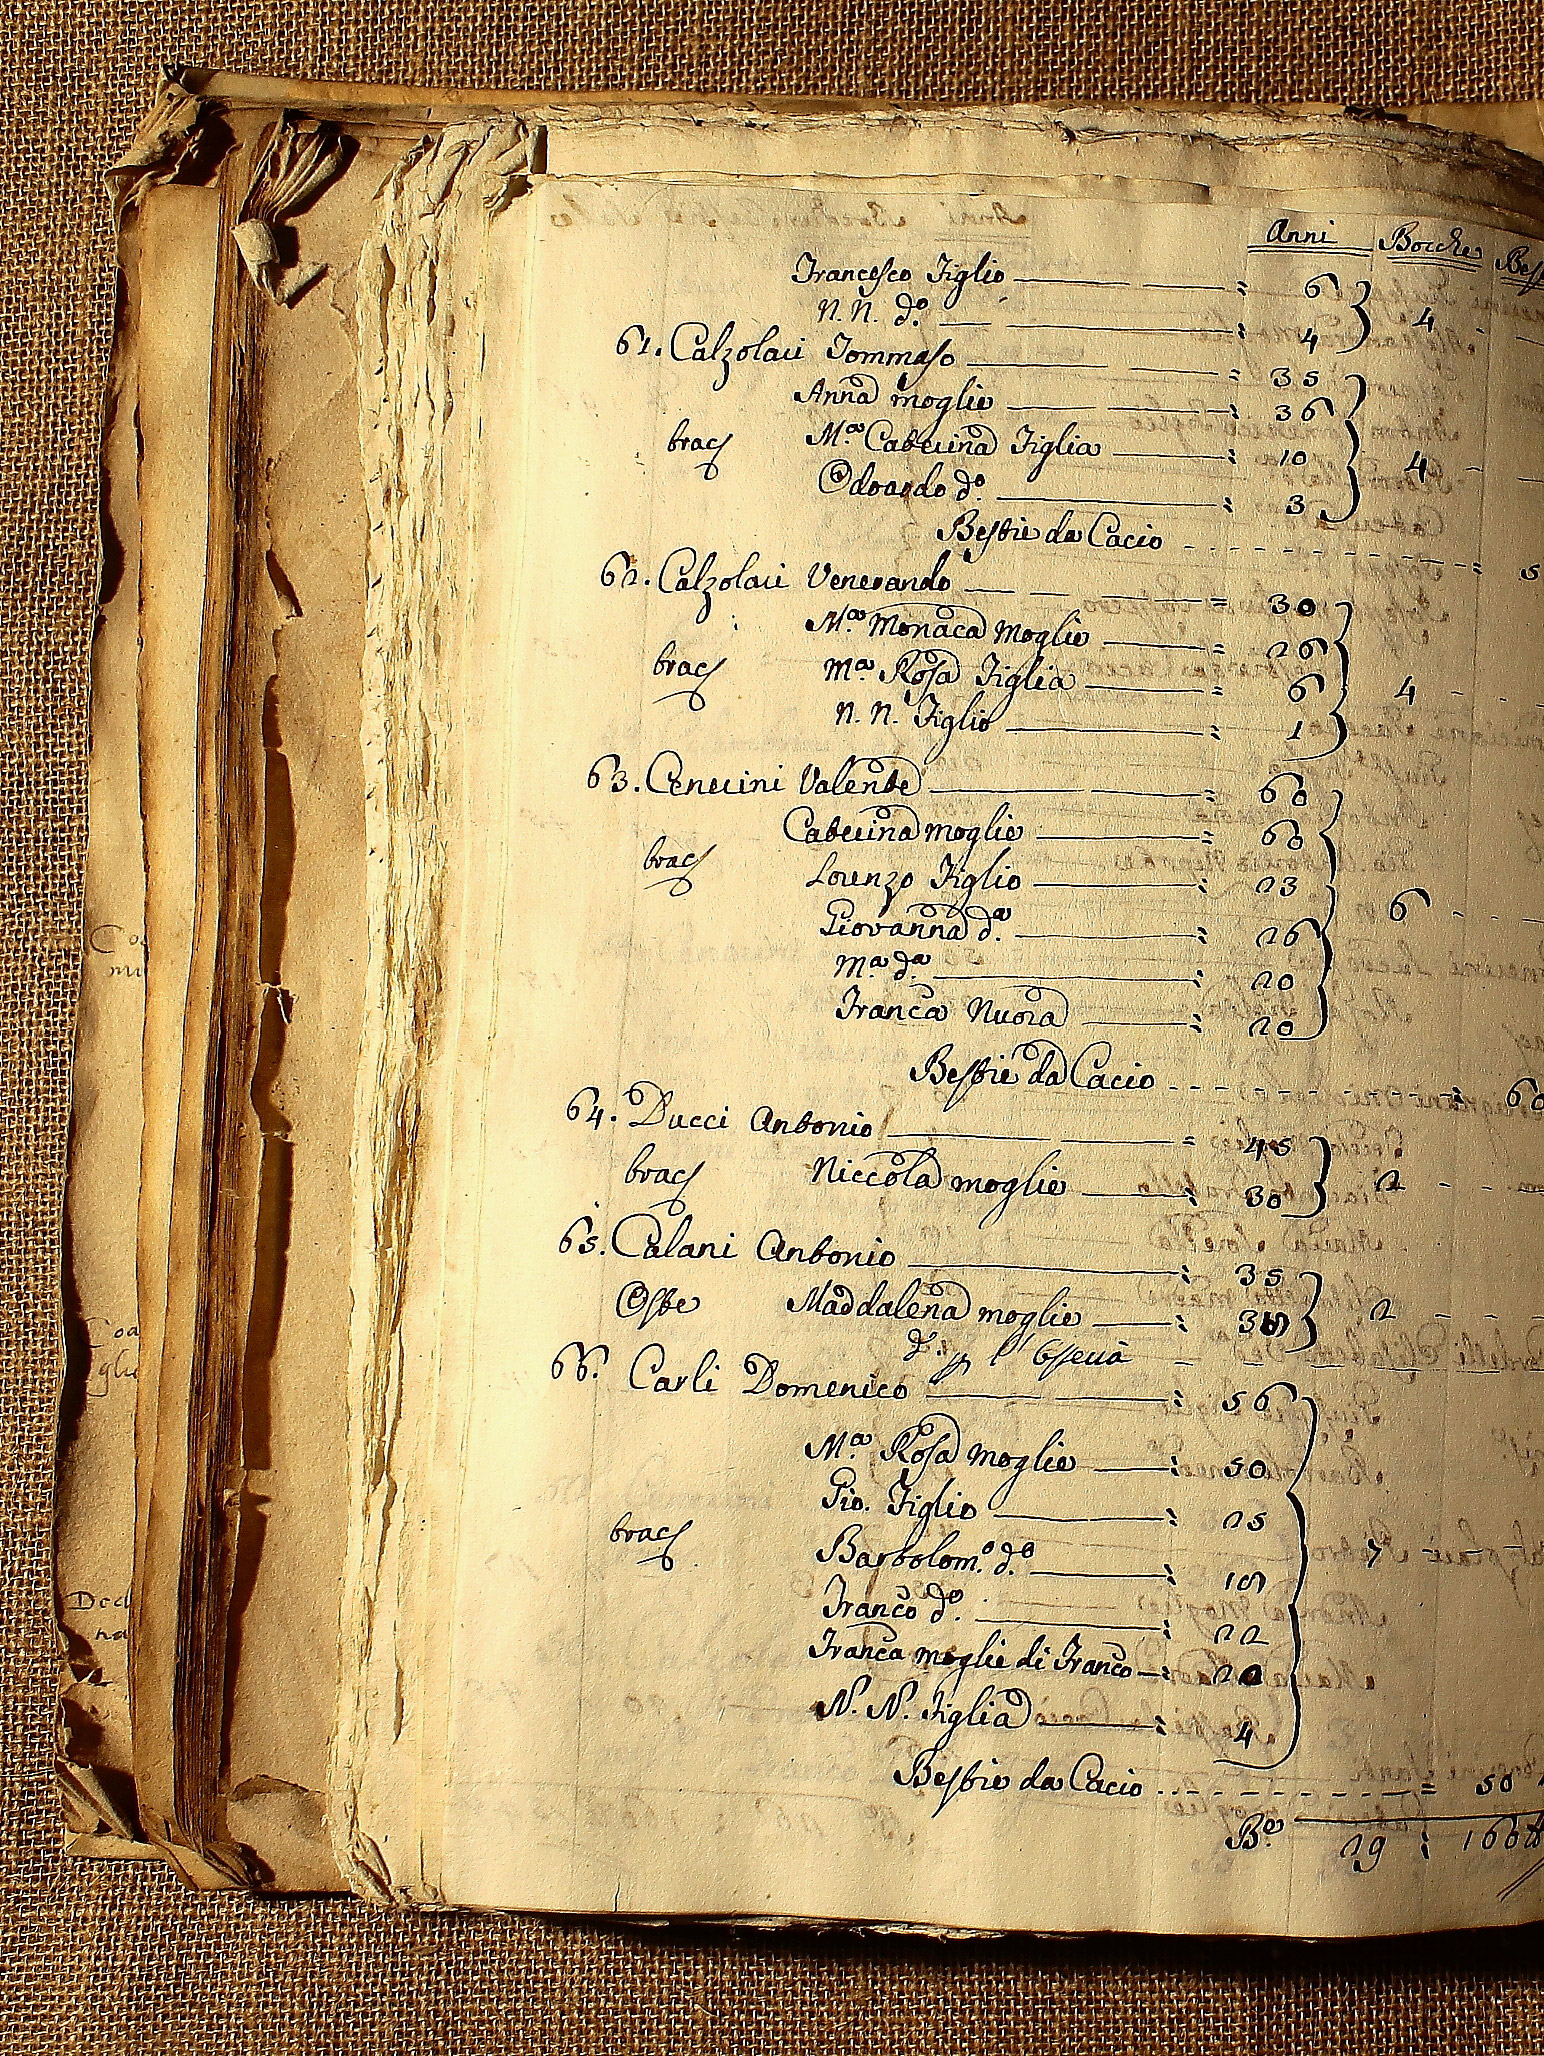 Anni Bocche
Francesco Figlio 6
N. N. d.o 4 4
61. Calzolari Tommaso 35
Anna moglie 36
brac M.a Caterina Figlia 10 4
Odoardo d.o 3
Bestie da Cacio 5
62. Calzolari Venerando 30
M.a Monaca moglie 26
brac M.a Rosa Figlia 6 4
N. N. Figlio 1
63. Cenerini Valente 60
Caterina moglie 60
brac Lorenzo Figlio 23
Giovanna d.a 26 6
M.a d.a 20
Franca Nuora 20
Bestie da Cacio 60
64. Ducci Antonio 45
brac Niccola moglie 30 2
65. Calani Antonio 35
Oste Maddalena moglie 2
66. Carli Domenico 56
M.a Rosa moglie 50
Gio. Figlio 25
brac Bartolom.o d.o 7
Franco d.o 22
Franca moglie di Franco 20
N. N. Figlia 4
Bestie da Cacio 50
29 : 160